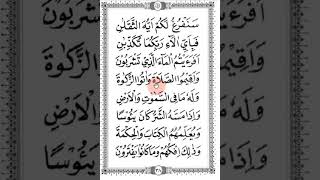 سَنَفْرُغُ لَكُمْ اَيُّهَ الثَّقَلٰنِ
فَبِاَيِّ اٰلَآءِ رَبِّكُمَا تُكَذِّبٰنِ
اَفَرَءَيْتُمُ الْمَآءَ الَّذِيْ تَشْرَبُوْنَ
وَاَقِيْمُوا الصَّلٰوةَ وَاٰتُوا الزَّكٰوةَ
وَلَهٗ مَا فِى السَّمٰوٰتِ وَالْاَرْضِ
وَاِذَا مَسَّهُ الشَّرُّ كَانَ يَئُوْسًا
وَيُعَلِّمُهُمُ الْكِتَابَ وَالْحِكْمَةَ
وَذٰلِكَ اِفْكُهُمْ وَمَا كَانُوْا يَفْتَرُوْنَ